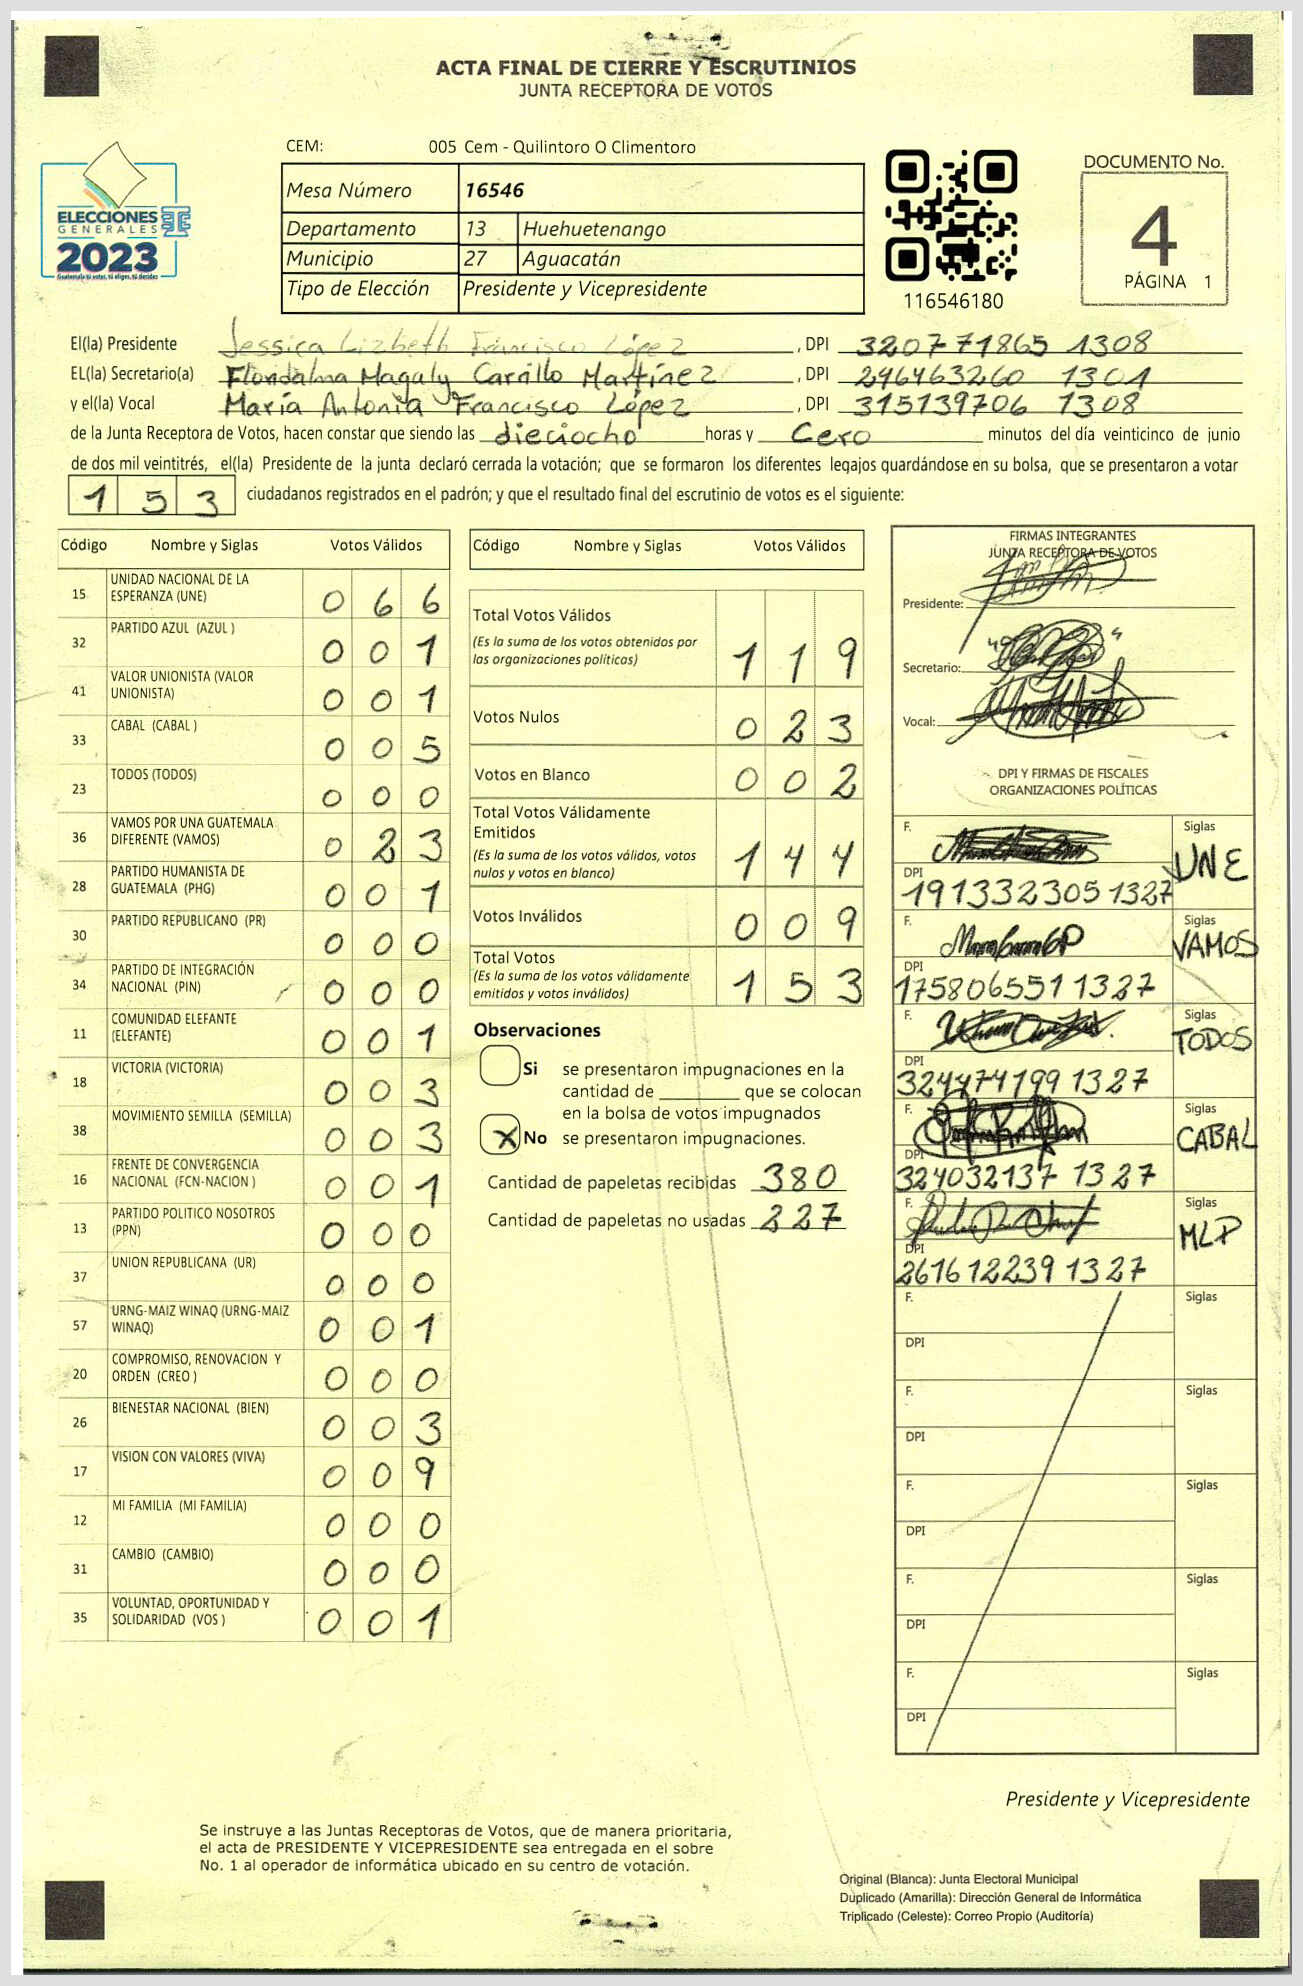 ACTA FINAL DE CIERRE Y ESCRUTINIOS
JUNTA RECEPTORA DE VOTOS
CEM: 005 Cem - Quilintoro O Climentoro
ELECCIONES
GENERALES
2023
Guatemala tú votas, tú eliges, tú decides
Mesa Número 16546
Departamento 13 Huehuetenango
Municipio 27 Aguacatán
Tipo de Elección Presidente y Vicepresidente
116546180
DOCUMENTO No.
4
PÁGINA 1
El(la) Presidente Jessica Lizbeth Francisco López , DPI 320771865 1308
EL(la) Secretario(a) Floridalma Magaly Carrillo Martínez , DPI 296463260 1301
y el(la) Vocal María Antonia Francisco López , DPI 315139706 1308
de la Junta Receptora de Votos, hacen constar que siendo las dieciocho horas y Cero minutos del día veinticinco de junio
de dos mil veintitrés, el(la) Presidente de la junta declaró cerrada la votación; que se formaron los diferentes legajos guardándose en su bolsa, que se presentaron a votar
153 ciudadanos registrados en el padrón; y que el resultado final del escrutinio de votos es el siguiente:
Código Nombre y Siglas Votos Válidos
15 UNIDAD NACIONAL DE LA ESPERANZA (UNE) 0 6 6
32 PARTIDO AZUL (AZUL ) 0 0 1
41 VALOR UNIONISTA (VALOR UNIONISTA) 0 0 1
33 CABAL (CABAL ) 0 0 5
23 TODOS (TODOS) 0 0 0
36 VAMOS POR UNA GUATEMALA DIFERENTE (VAMOS) 0 2 3
28 PARTIDO HUMANISTA DE GUATEMALA (PHG) 0 0 1
30 PARTIDO REPUBLICANO (PR) 0 0 0
34 PARTIDO DE INTEGRACIÓN NACIONAL (PIN) 0 0 0
11 COMUNIDAD ELEFANTE (ELEFANTE) 0 0 1
18 VICTORIA (VICTORIA) 0 0 3
38 MOVIMIENTO SEMILLA (SEMILLA) 0 0 3
16 FRENTE DE CONVERGENCIA NACIONAL (FCN-NACION ) 0 0 1
13 PARTIDO POLITICO NOSOTROS (PPN) 0 0 0
37 UNION REPUBLICANA (UR) 0 0 0
57 URNG-MAIZ WINAQ (URNG-MAIZ WINAQ) 0 0 1
20 COMPROMISO, RENOVACION Y ORDEN (CREO ) 0 0 0
26 BIENESTAR NACIONAL (BIEN) 0 0 3
17 VISION CON VALORES (VIVA) 0 0 9
12 MI FAMILIA (MI FAMILIA) 0 0 0
31 CAMBIO (CAMBIO) 0 0 0
35 VOLUNTAD, OPORTUNIDAD Y SOLIDARIDAD (VOS ) 0 0 1
Código Nombre y Siglas Votos Válidos
Total Votos Válidos
(Es la suma de los votos obtenidos por
las organizaciones políticas) 1 1 9
Votos Nulos 0 2 3
Votos en Blanco 0 0 2
Total Votos Válidamente
Emitidos
(Es la suma de los votos válidos, votos
nulos y votos en blanco) 1 4 4
Votos Inválidos 0 0 9
Total Votos
(Es la suma de los votos válidamente
emitidos y votos inválidos) 1 5 3
Observaciones
Si se presentaron impugnaciones en la
cantidad de ________ que se colocan
en la bolsa de votos impugnados
X No se presentaron impugnaciones.
Cantidad de papeletas recibidas 380
Cantidad de papeletas no usadas 227
FIRMAS INTEGRANTES
JUNTA RECEPTORA DE VOTOS
Presidente:
Secretario:
Vocal:
DPI Y FIRMAS DE FISCALES
ORGANIZACIONES POLÍTICAS
F. Siglas UNE
DPI 191332305 1327
F. Siglas VAMOS
DPI 175806551 1327
F. Siglas TODOS
DPI 324474199 1327
F. Siglas CABAL
DPI 324032137 1327
F. Siglas MLP
DPI 261612239 1327
F. Siglas
DPI
F. Siglas
DPI
F. Siglas
DPI
F. Siglas
DPI
F. Siglas
DPI
Presidente y Vicepresidente
Se instruye a las Juntas Receptoras de Votos, que de manera prioritaria,
el acta de PRESIDENTE Y VICEPRESIDENTE sea entregada en el sobre
No. 1 al operador de informática ubicado en su centro de votación.
Original (Blanca): Junta Electoral Municipal
Duplicado (Amarilla): Dirección General de Informática
Triplicado (Celeste): Correo Propio (Auditoría)